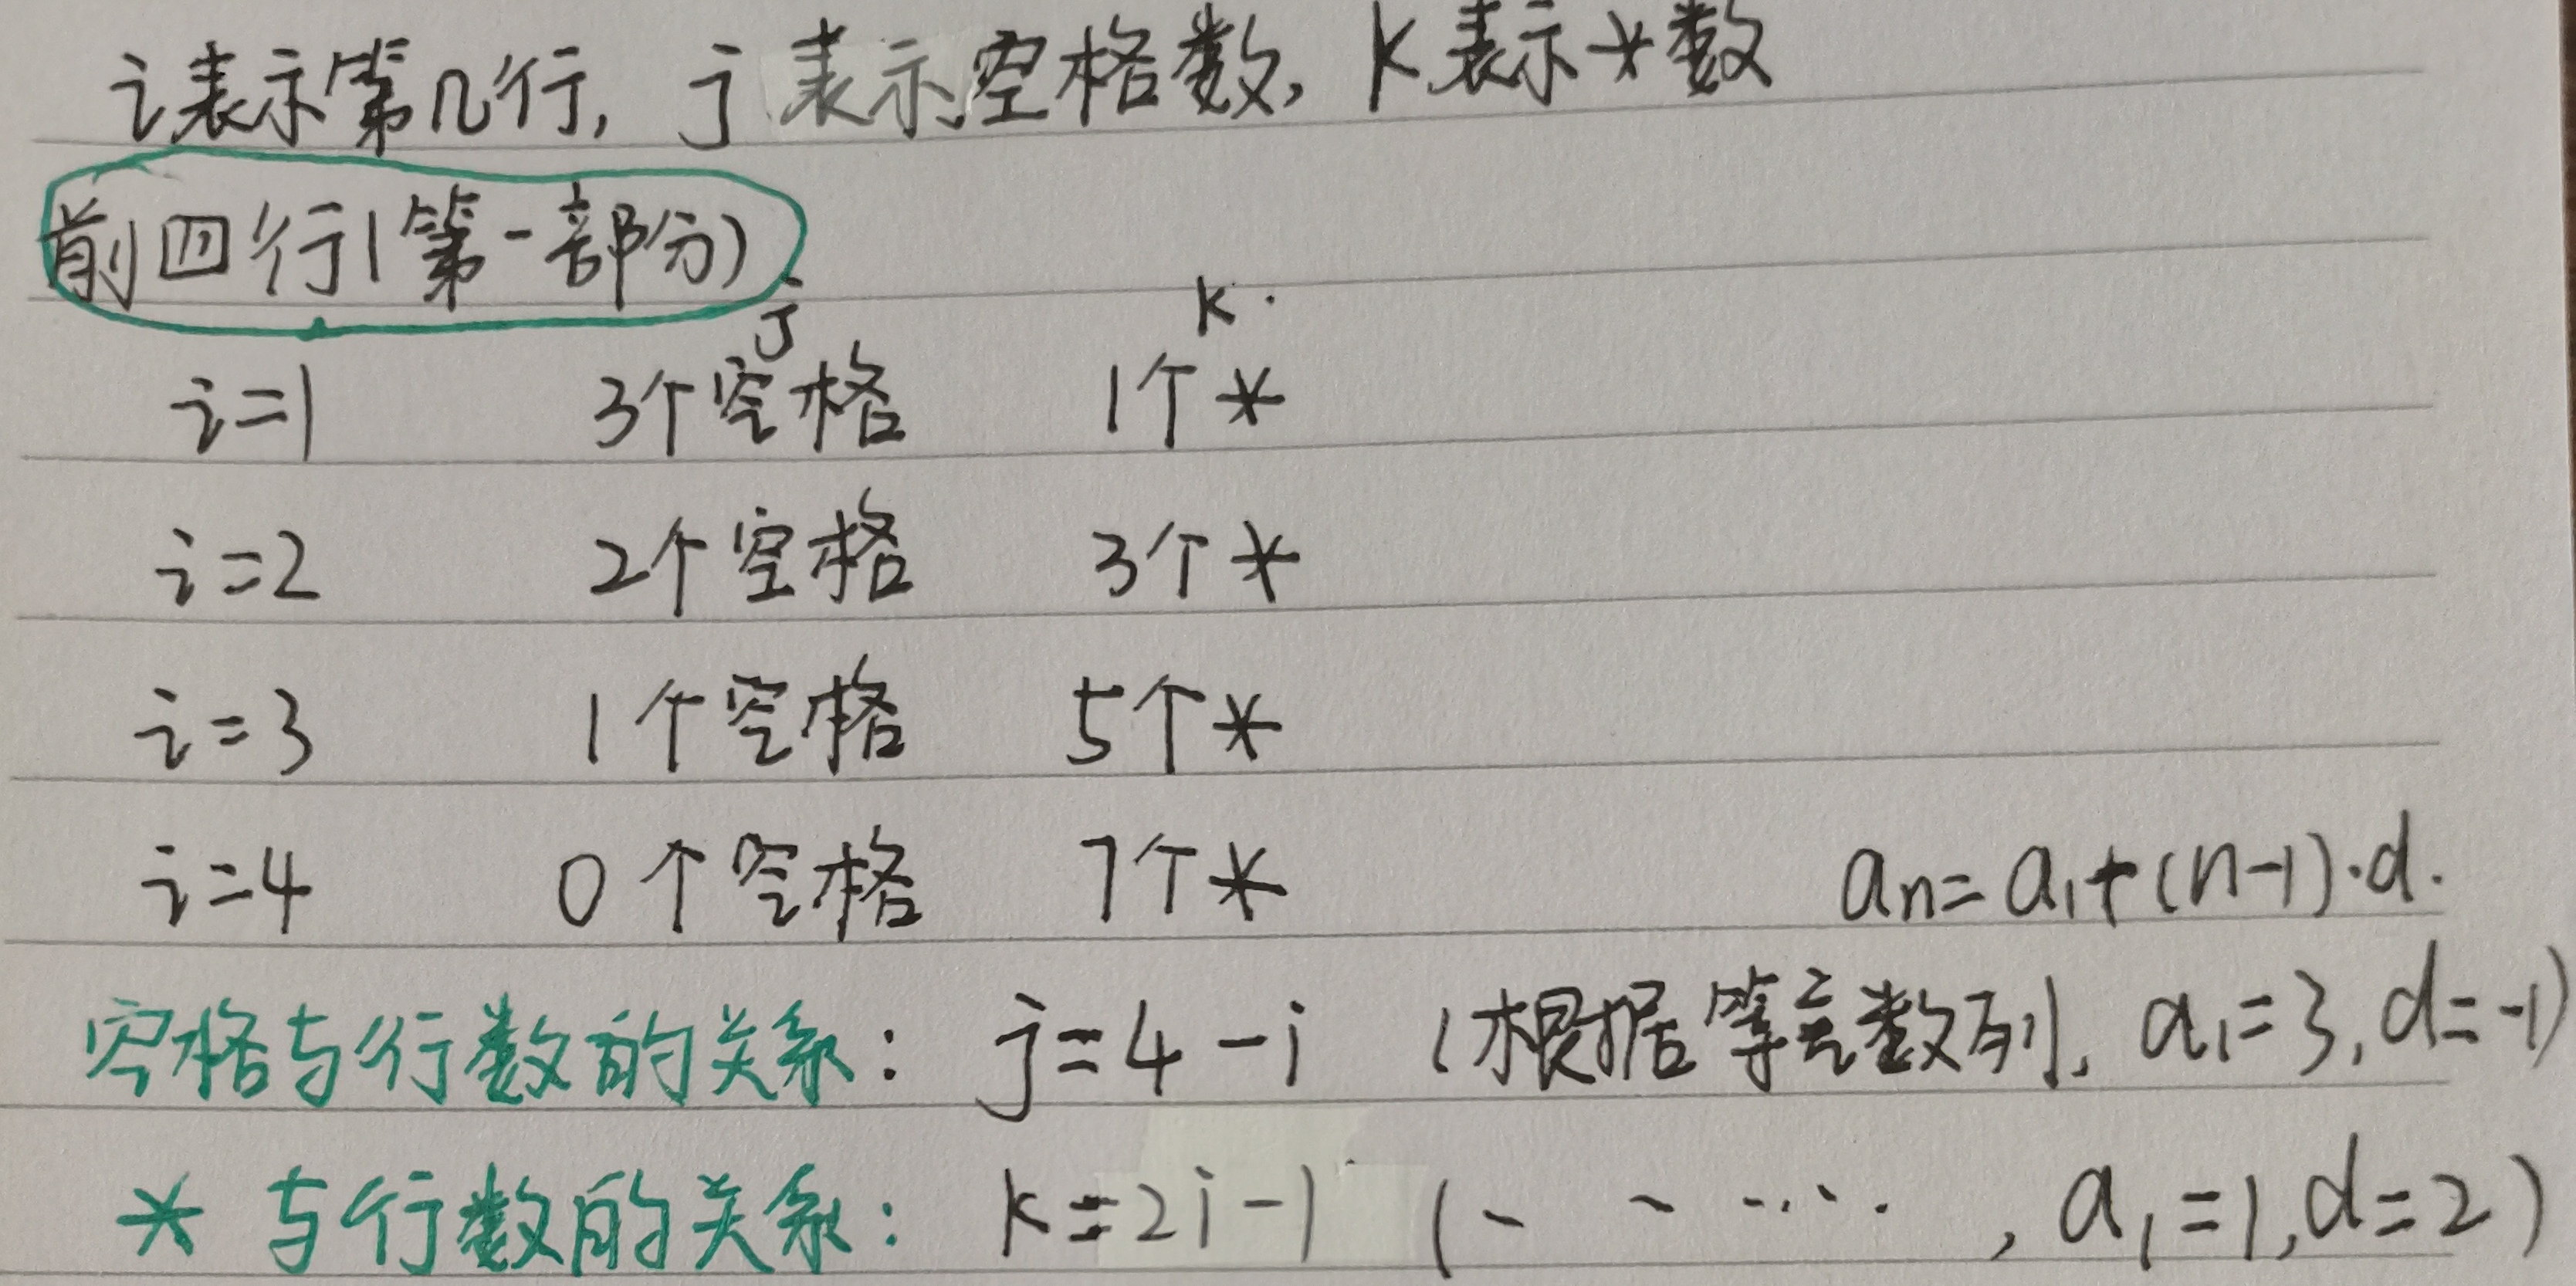 i表示第几行, j表示空格数, k表示*数
前四行(第一部分)
j k
i=1 3个空格 1个*
i=2 2个空格 3个*
i=3 1个空格 5个*
i=4 0个空格 7个* an=a1+(n-1)·d.
空格与行数的关系: j=4-i (根据等差数列, a1=3, d=-1)
*与行数的关系: k=2i-1 (- - ·····, a1=1, d=2)